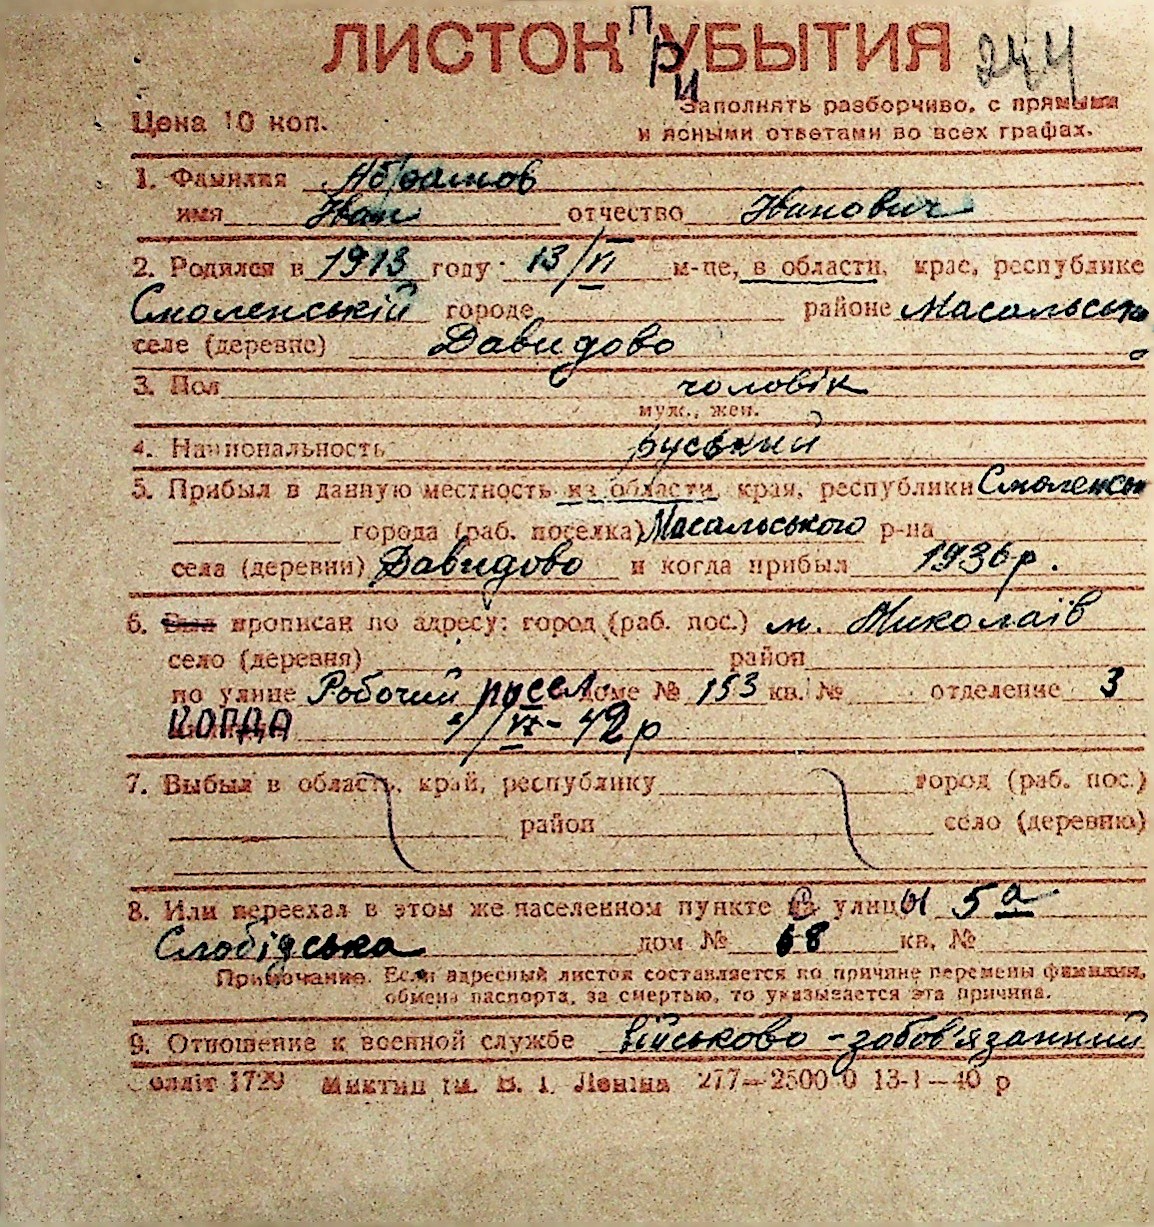 ЛИСТОК ПРИБЫТИЯ 244
Заполнять разборчиво, с прямыми
Цена 10 коп. и ясными ответами во всех графах.
1. Фамилия Абрамов
имя Іван отчество Іванович
2. Родился в 1913 году 13/VI м-це, в области, крае, республике
Смоленській городе районе Масальсько
селе (деревне) Давидово
3. Пол чоловік
муж., жен.
4. Национальность руський
5. Прибыл в данную местность из области, края, республики Смоленськ
города (раб. поселка) Масальського р-на
села (деревни) Давидово и когда прибыл 1936 р.
6. Был прописан по адресу: город (раб. пос.) м. Миколаїв
село (деревня) район
по улице Робочий посел. доме № 153 кв. № отделение 3
КОГДА /VI - 42 р
7. Выбыл в область, край, республику город (раб. пос.)
район село (деревню)
8. Или переехал в этом же населенном пункте С улицы 5а
Слобідська дом № 68 кв. №
Примечание. Если адресный листок составляется по причине перемены фамилии,
обмена паспорта, за смертью, то указывается эта причина.
9. Отношение к военной службе Військово-зобов'язанний
Облліт 1729 Миктип ім. В. І. Леніна 277—2500 0 13-1—40 р